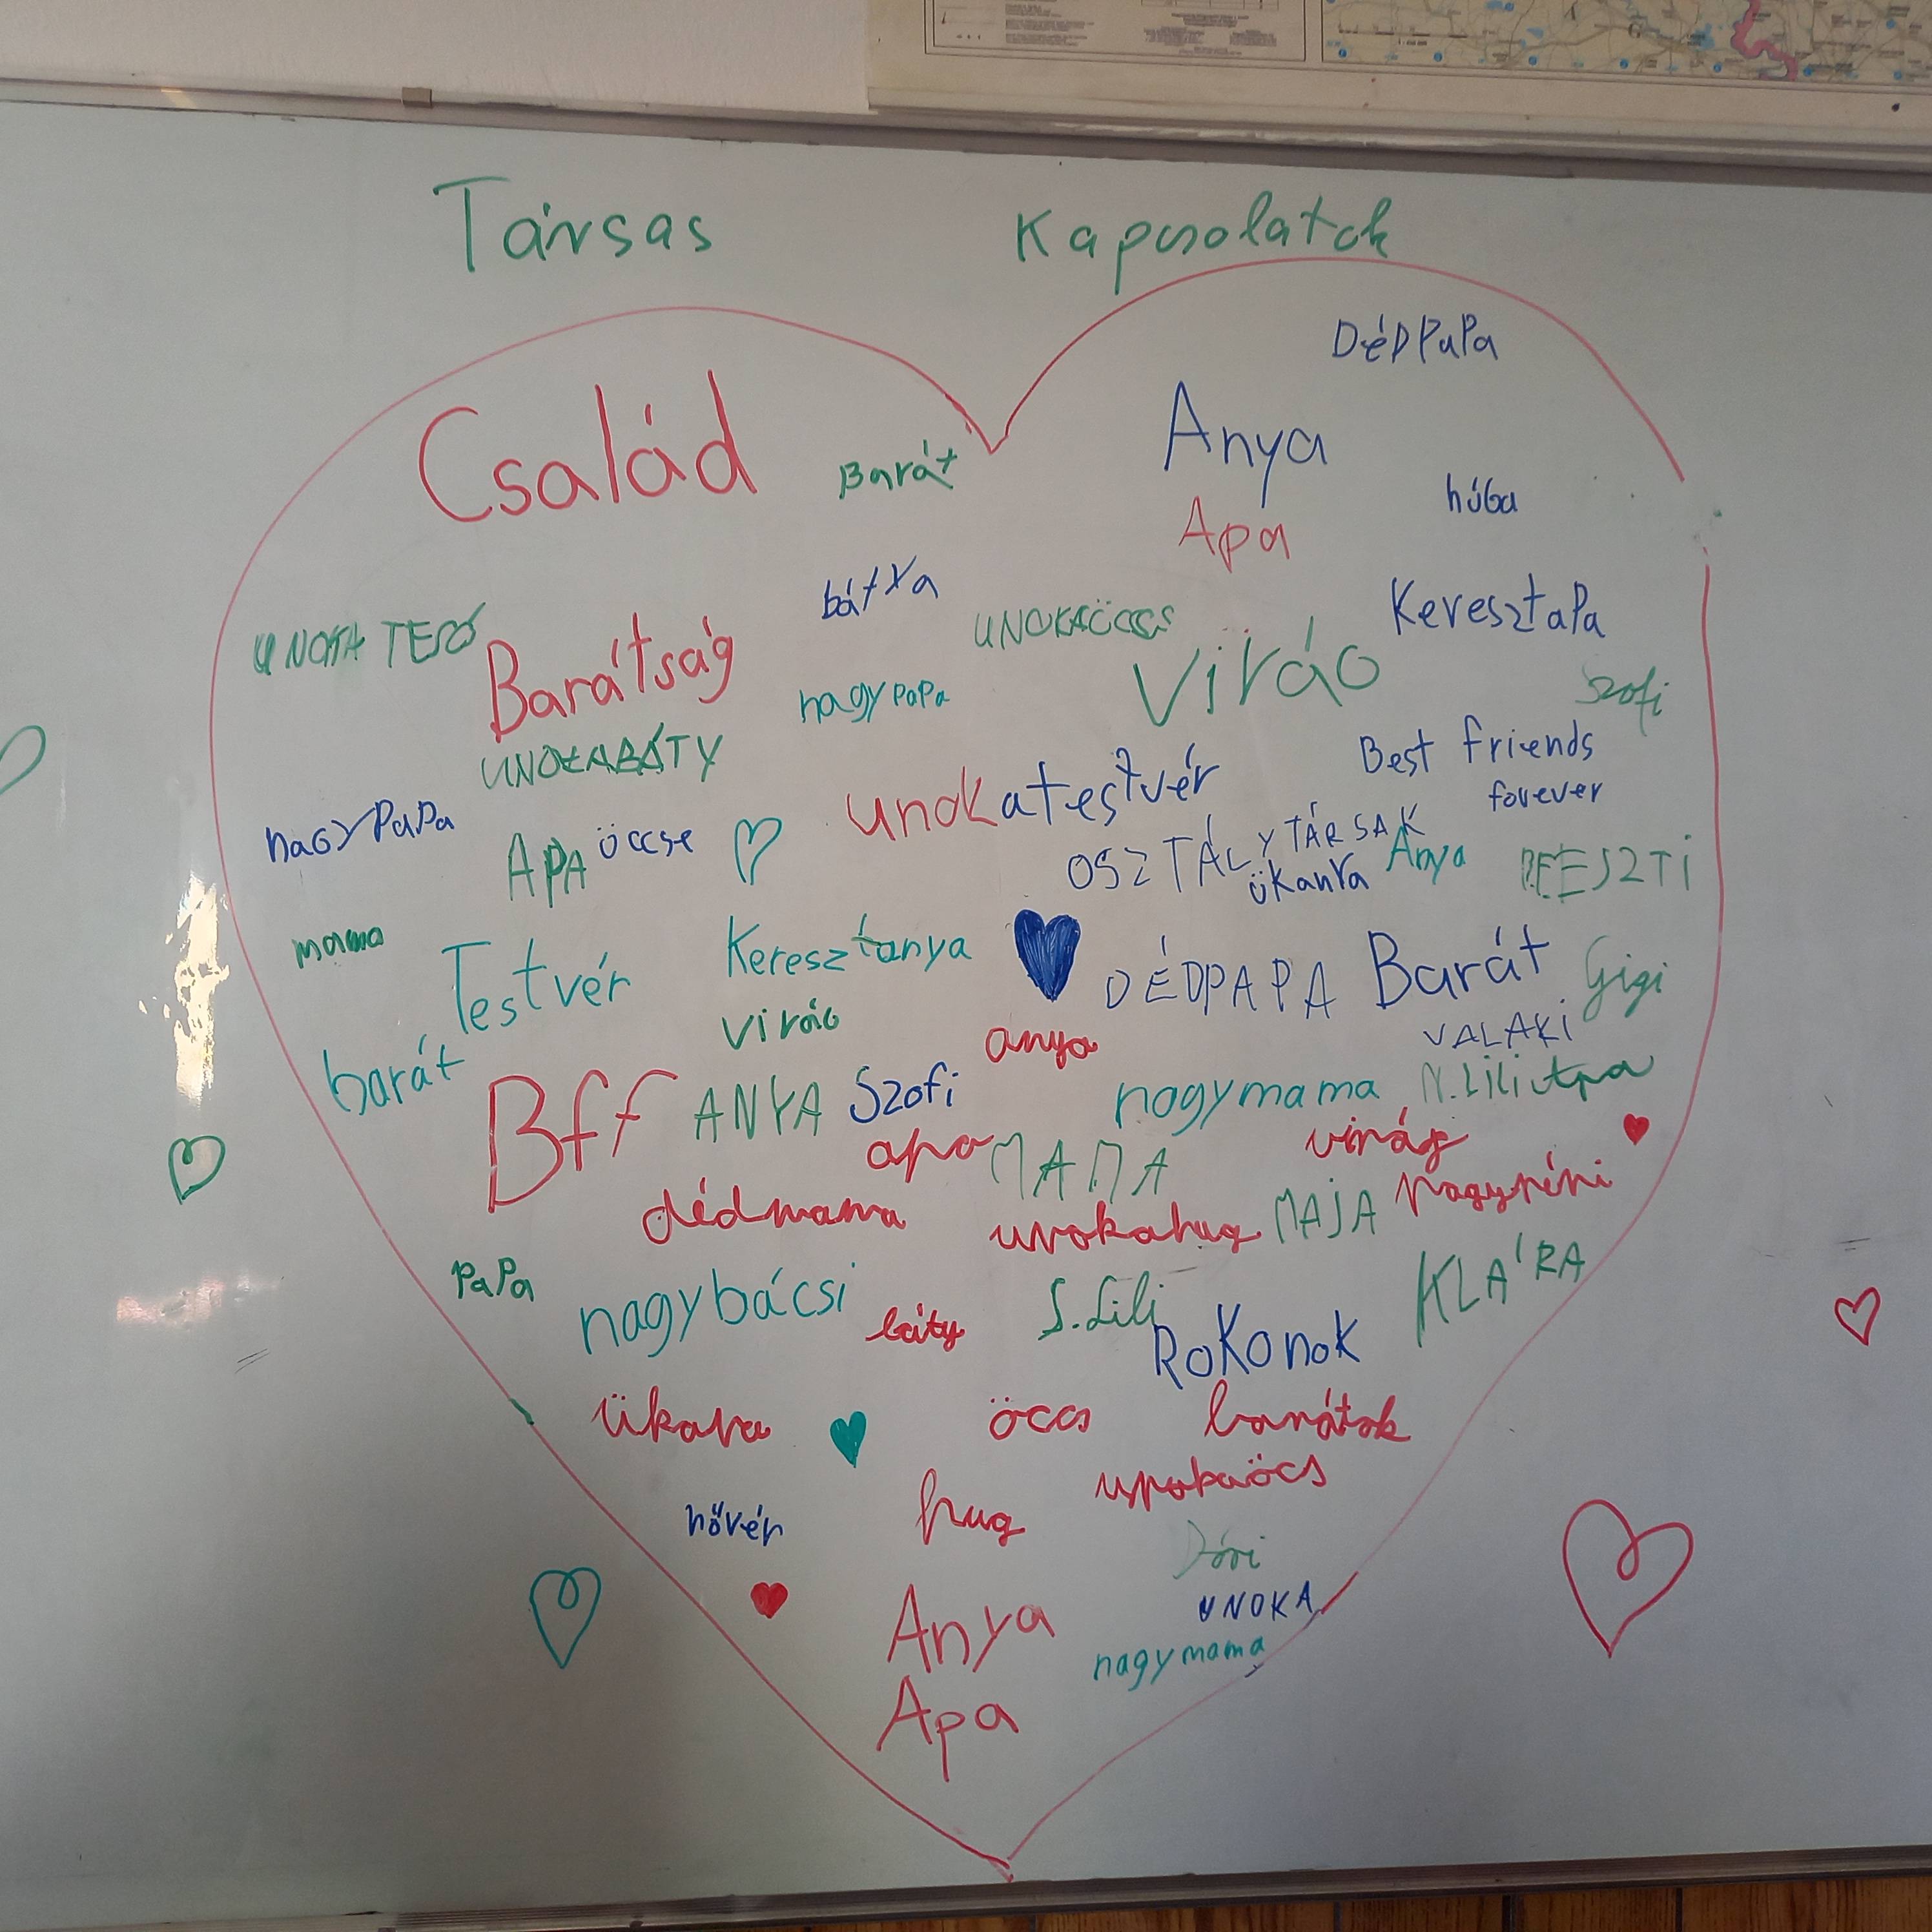 Társas Kapcsolatok
DéDPaPa
Család
Anya
Barát
húga
Apa
bátYa
Keresztapa
UNOKA TESÓ
UNOKAÖCCS
Barátság
Virág
nagypapa
Szofi
UNOKABÁTY
Best friends
forever
unokatestvér
nagyPaPa
APA öccse
OSZTÁLYTÁRSAK
ükanYa
Anya
mama
Testvér
Keresztanya
DÉDPAPA
Barát
Gigi
virág
VALAKI
anya
barát
Bff
ANYA
Szofi
nagymama
N.Lili
Apa
apa
MAMA
virág
dédmama
unokahug
MAJA
Nagynéni
PaPa
nagybácsi
báty
S.Lili
RoKonoK
KLÁRA
ükapa
öccs
barátok
unokaöcs
nővér
hug
Dóri
Anya
UNOKA
nagymama
Apa